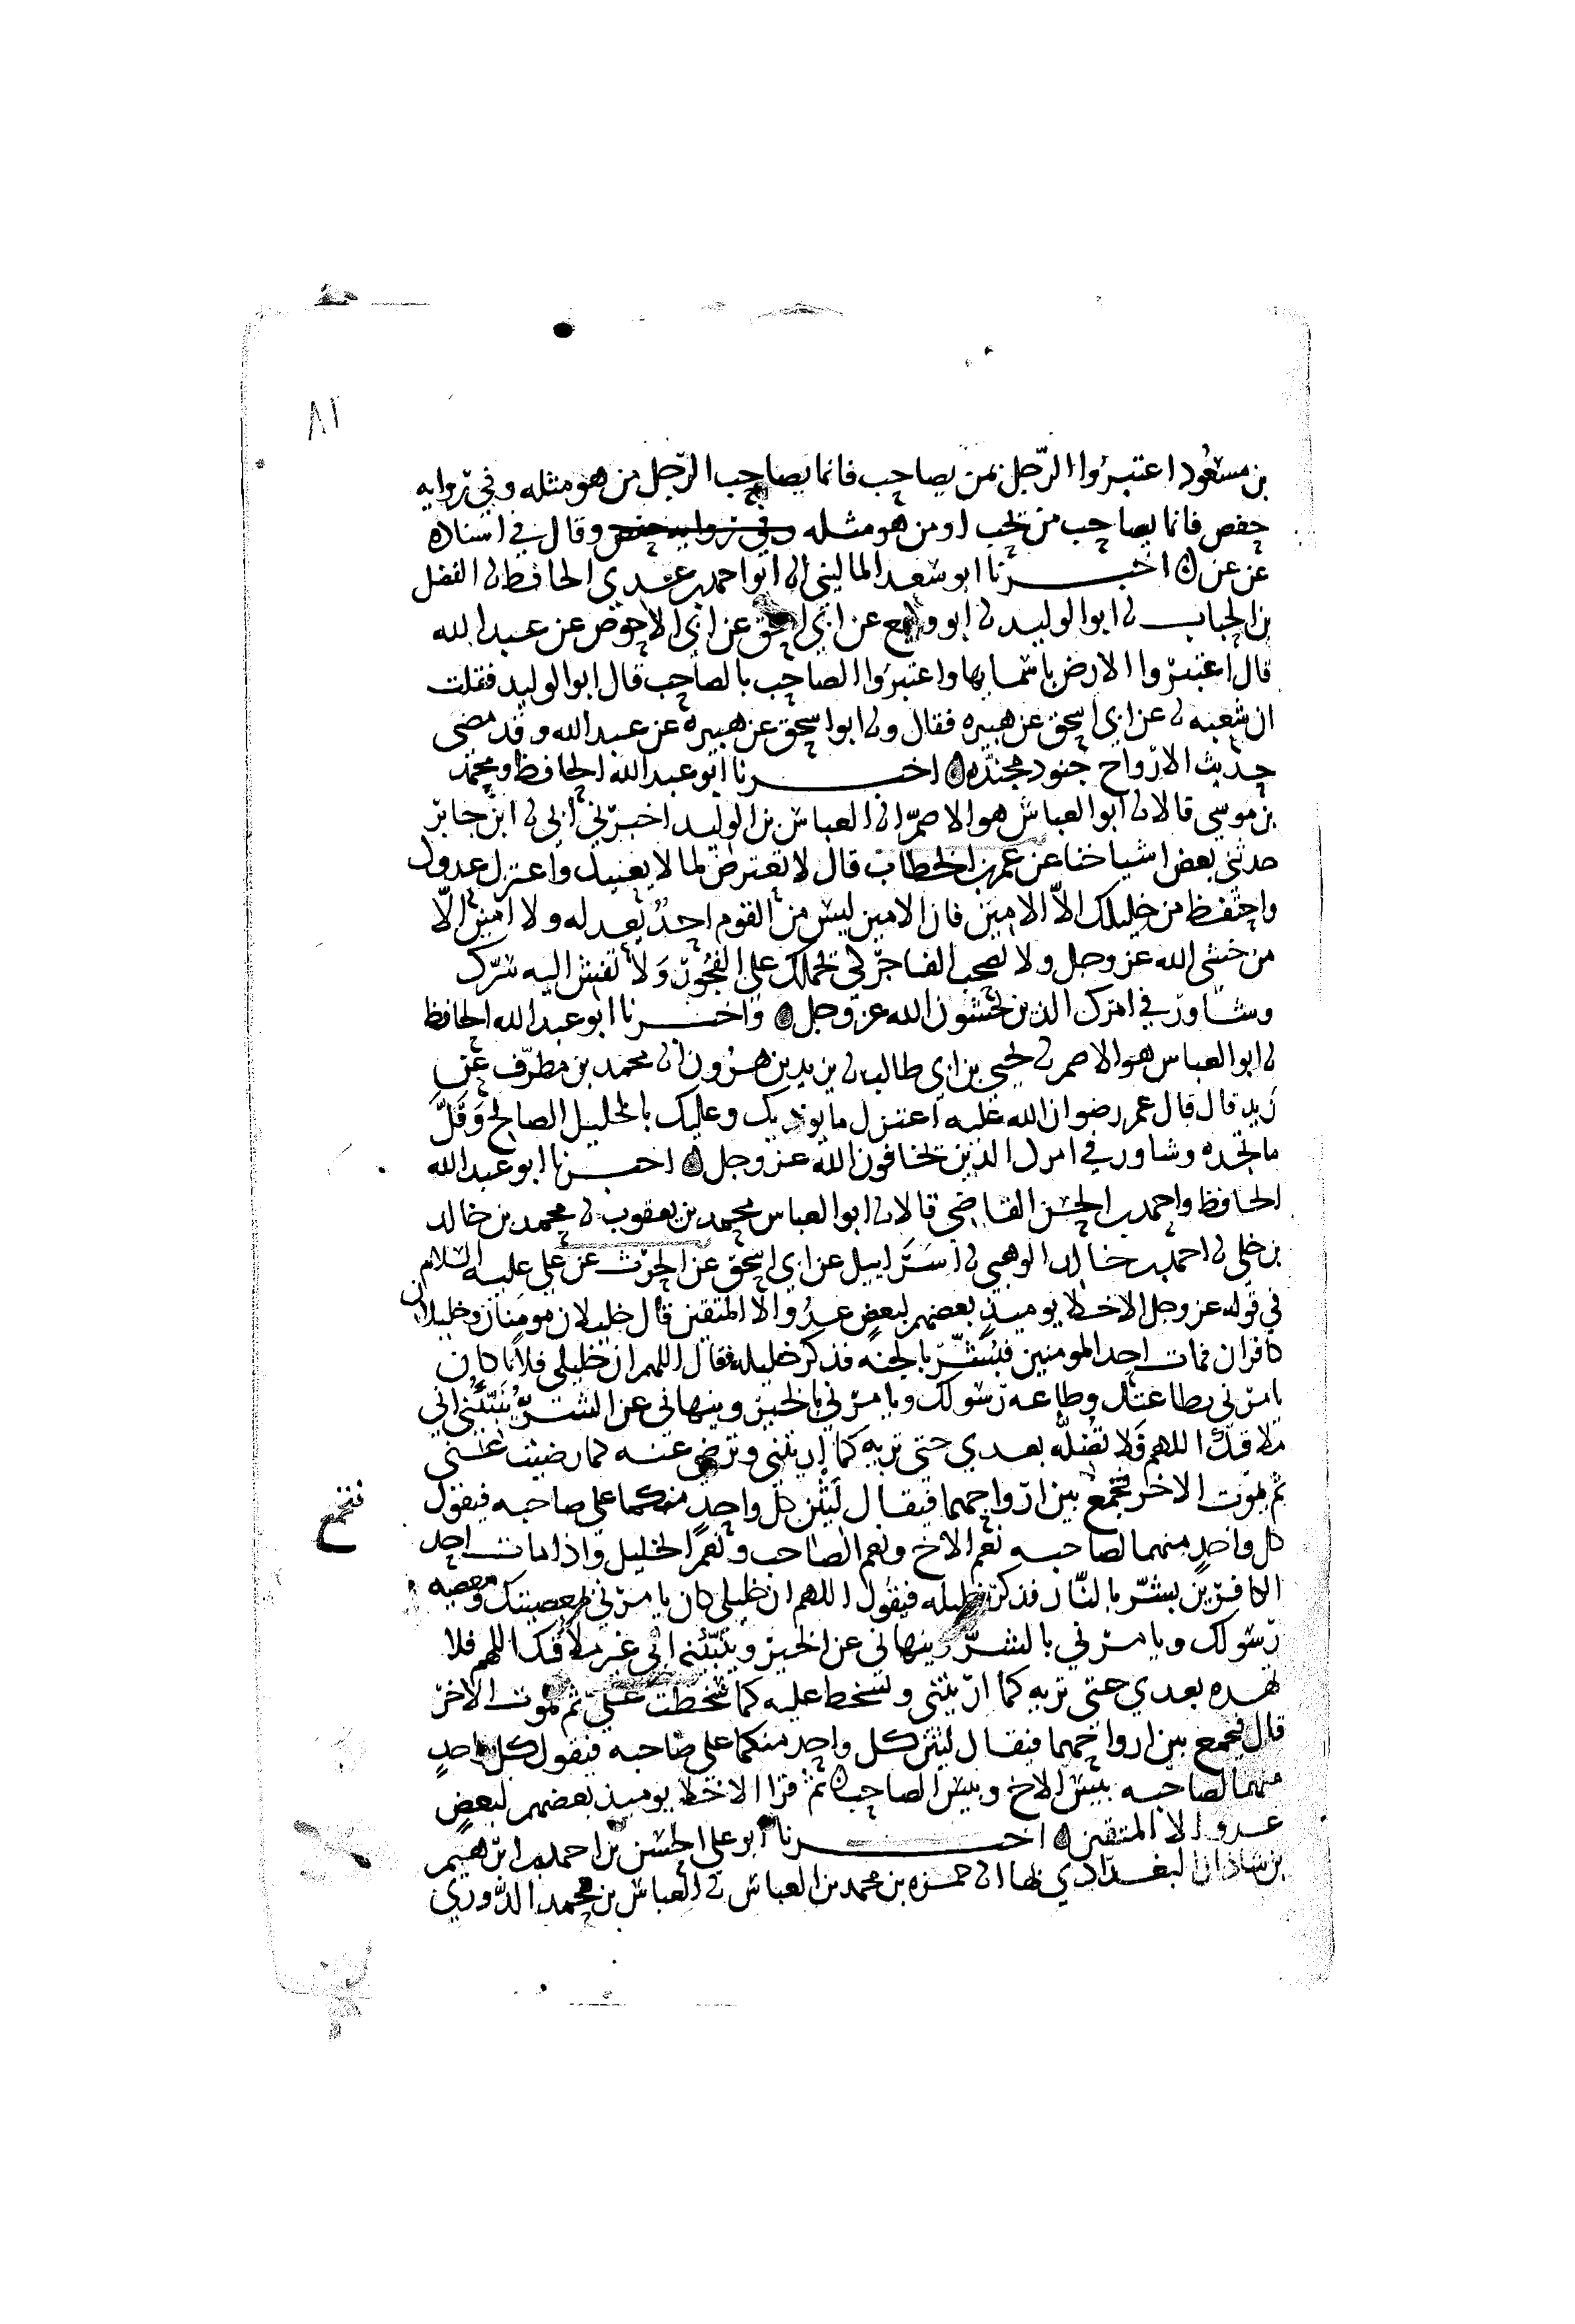 ٨١
بن مسعود اعتبروا الرجل بمن يصاحب فانما يصاحب الرجل من هو مثله وفي روايه
حفص فانما يصاحب من يحب او من هو مثله وفي روايه حفص وقال في اسناده
عن عن اخبرنا ابو سعد الماليني انا ابو احمد بن عدي الحافظ نا الفضل
بن الحباب نا ابو الوليد نا ابو وكيع عن ابي اسحق عن ابي الاحوص عن عبد الله
قال اعتبروا الارض باسمايها واعتبروا الصاحب بالصاحب قال ابو الوليد فقلت
ان شعبه نا عن ابي اسحق عن هبيره فقال ونا ابو اسحق عن هبيره عن عبد الله وقد مضى
حديث الارواح جنود مجنده اخبرنا ابو عبد الله الحافظ ومحمد
بن موسى قالا نا ابو العباس هو الاصم انا العباس بن الوليد اخبرني ابي نا ابن جابر
حدثني بعض اشياخنا عن عمر بن الخطاب قال لا تعترض لما لا يعنيك واعتزل عدوك
واحتفظ من خليلك الا الامين فان الامين ليس من القوم احد يعدله ولا امين الا
من خشي الله عز وجل ولا تصحب الفاجر كي يحملك على الفجور ولا تفش اليه سرك
وشاور في امرك الذين يخشون الله عز وجل واخبرنا ابو عبد الله الحافظ
نا ابو العباس هو الاصم نا يحيى بن ابي طالب نا يزيد بن هرون انا محمد بن مطرف عن
زيد قال قال عمر رضوان الله عليه اعتزل ما يوذيك وعليك بالخليل الصالح وقل
ما تجده وشاور في امرك الذين يخافون الله عز وجل اخبرنا ابو عبد الله
الحافظ واحمد بن الحسن القاضي قالا نا ابو العباس محمد بن يعقوب نا محمد بن خالد
بن خلي نا احمد بن خالد الوهبي نا اسراييل عن ابي اسحق عن الحرث عن علي عليه السلام
في قوله عز وجل الاخلا يوميذ بعضهم لبعض عدو الا المتقين قال خليلان مومنان وخليلان
كافران فمات احد المومنين فبشر بالجنه فذكر خليله فقال اللهم ان خليلي فلانا كان
يامرني بطاعتك وطاعه رسولك ويامرني بالخير وينهاني عن الشر وينبئني اني
ملاقيك اللهم فلا تضله بعدي حتى تريه كما اريتني وترضى عنه كما رضيت عني
ثم يموت الاخر فيجمع بين ارواحهما فيقال ليثن كل واحد منكما على صاحبه فيقول
كل واحد منهما لصاحبه نعم الاخ ونعم الصاحب ونعم الخليل واذا مات احد
الكافرين بشر بالنار فذكر خليله فيقول اللهم ان خليلي كان يامرني بمعصيتك ومعصيه
رسولك ويامرني بالشر وينهاني عن الخير وينبئني اني غير ملاقيك اللهم فلا
تهده بعدي حتى تريه كما اريتني وتسخط عليه كما سخطت علي ثم يموت الاخر
قال فيجمع بين ارواحهما فيقال ليثن كل واحد منكما على صاحبه فيقول كل واحد
منهما لصاحبه بيس الاخ وبيس الصاحب ثم قرا الاخلا يوميذ بعضهم لبعض
عدو الا المتقين اخبرنا ابو علي الحسن بن احمد بن ابرهيم
بن شاذان البغدادي بها انا حمزه بن محمد بن العباس نا العباس بن محمد الدوري